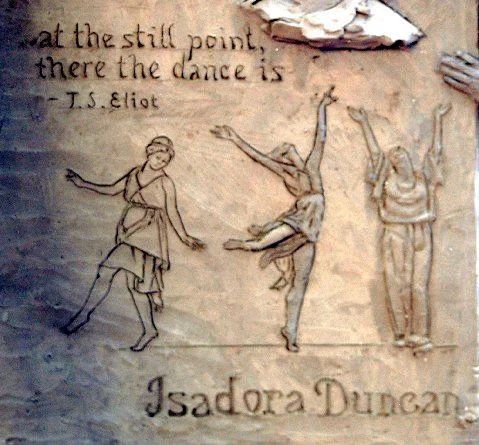 at the still point,
there the dance is
- T.S. Eliot
Isadora Duncan